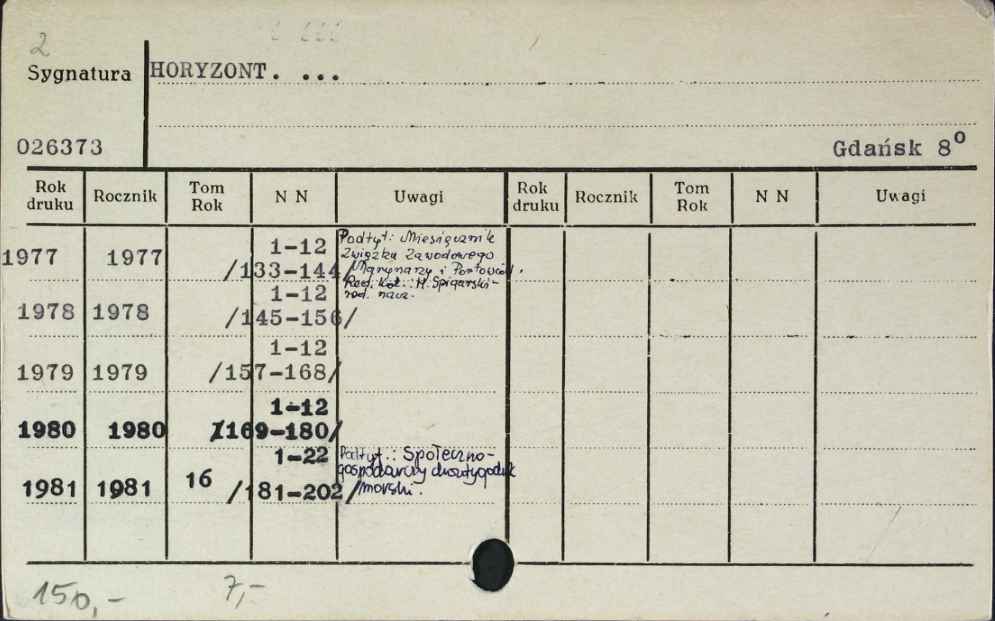 2
Sygnatura HORYZONT. ...
026373 Gdańsk 8°
Rok druku Rocznik Tom Rok N N Uwagi Rok druku Rocznik Tom Rok N N Uwagi
1977 1977 1-12 /133-144/ Podtyt: Miesięcznik
Związku Zawodowego
Marynarzy i Portowców.
Red. Kol.: M. Spigarski-
red. nacz.
1978 1978 1-12 /145-156/
1979 1979 1-12 /157-168/
1980 1980 1-12 /169-180/
1981 1981 16 1-22 /181-202/ Podtyt.: Społeczno-
gospodarczy dwutygodnik
morski.
150,- 7,-